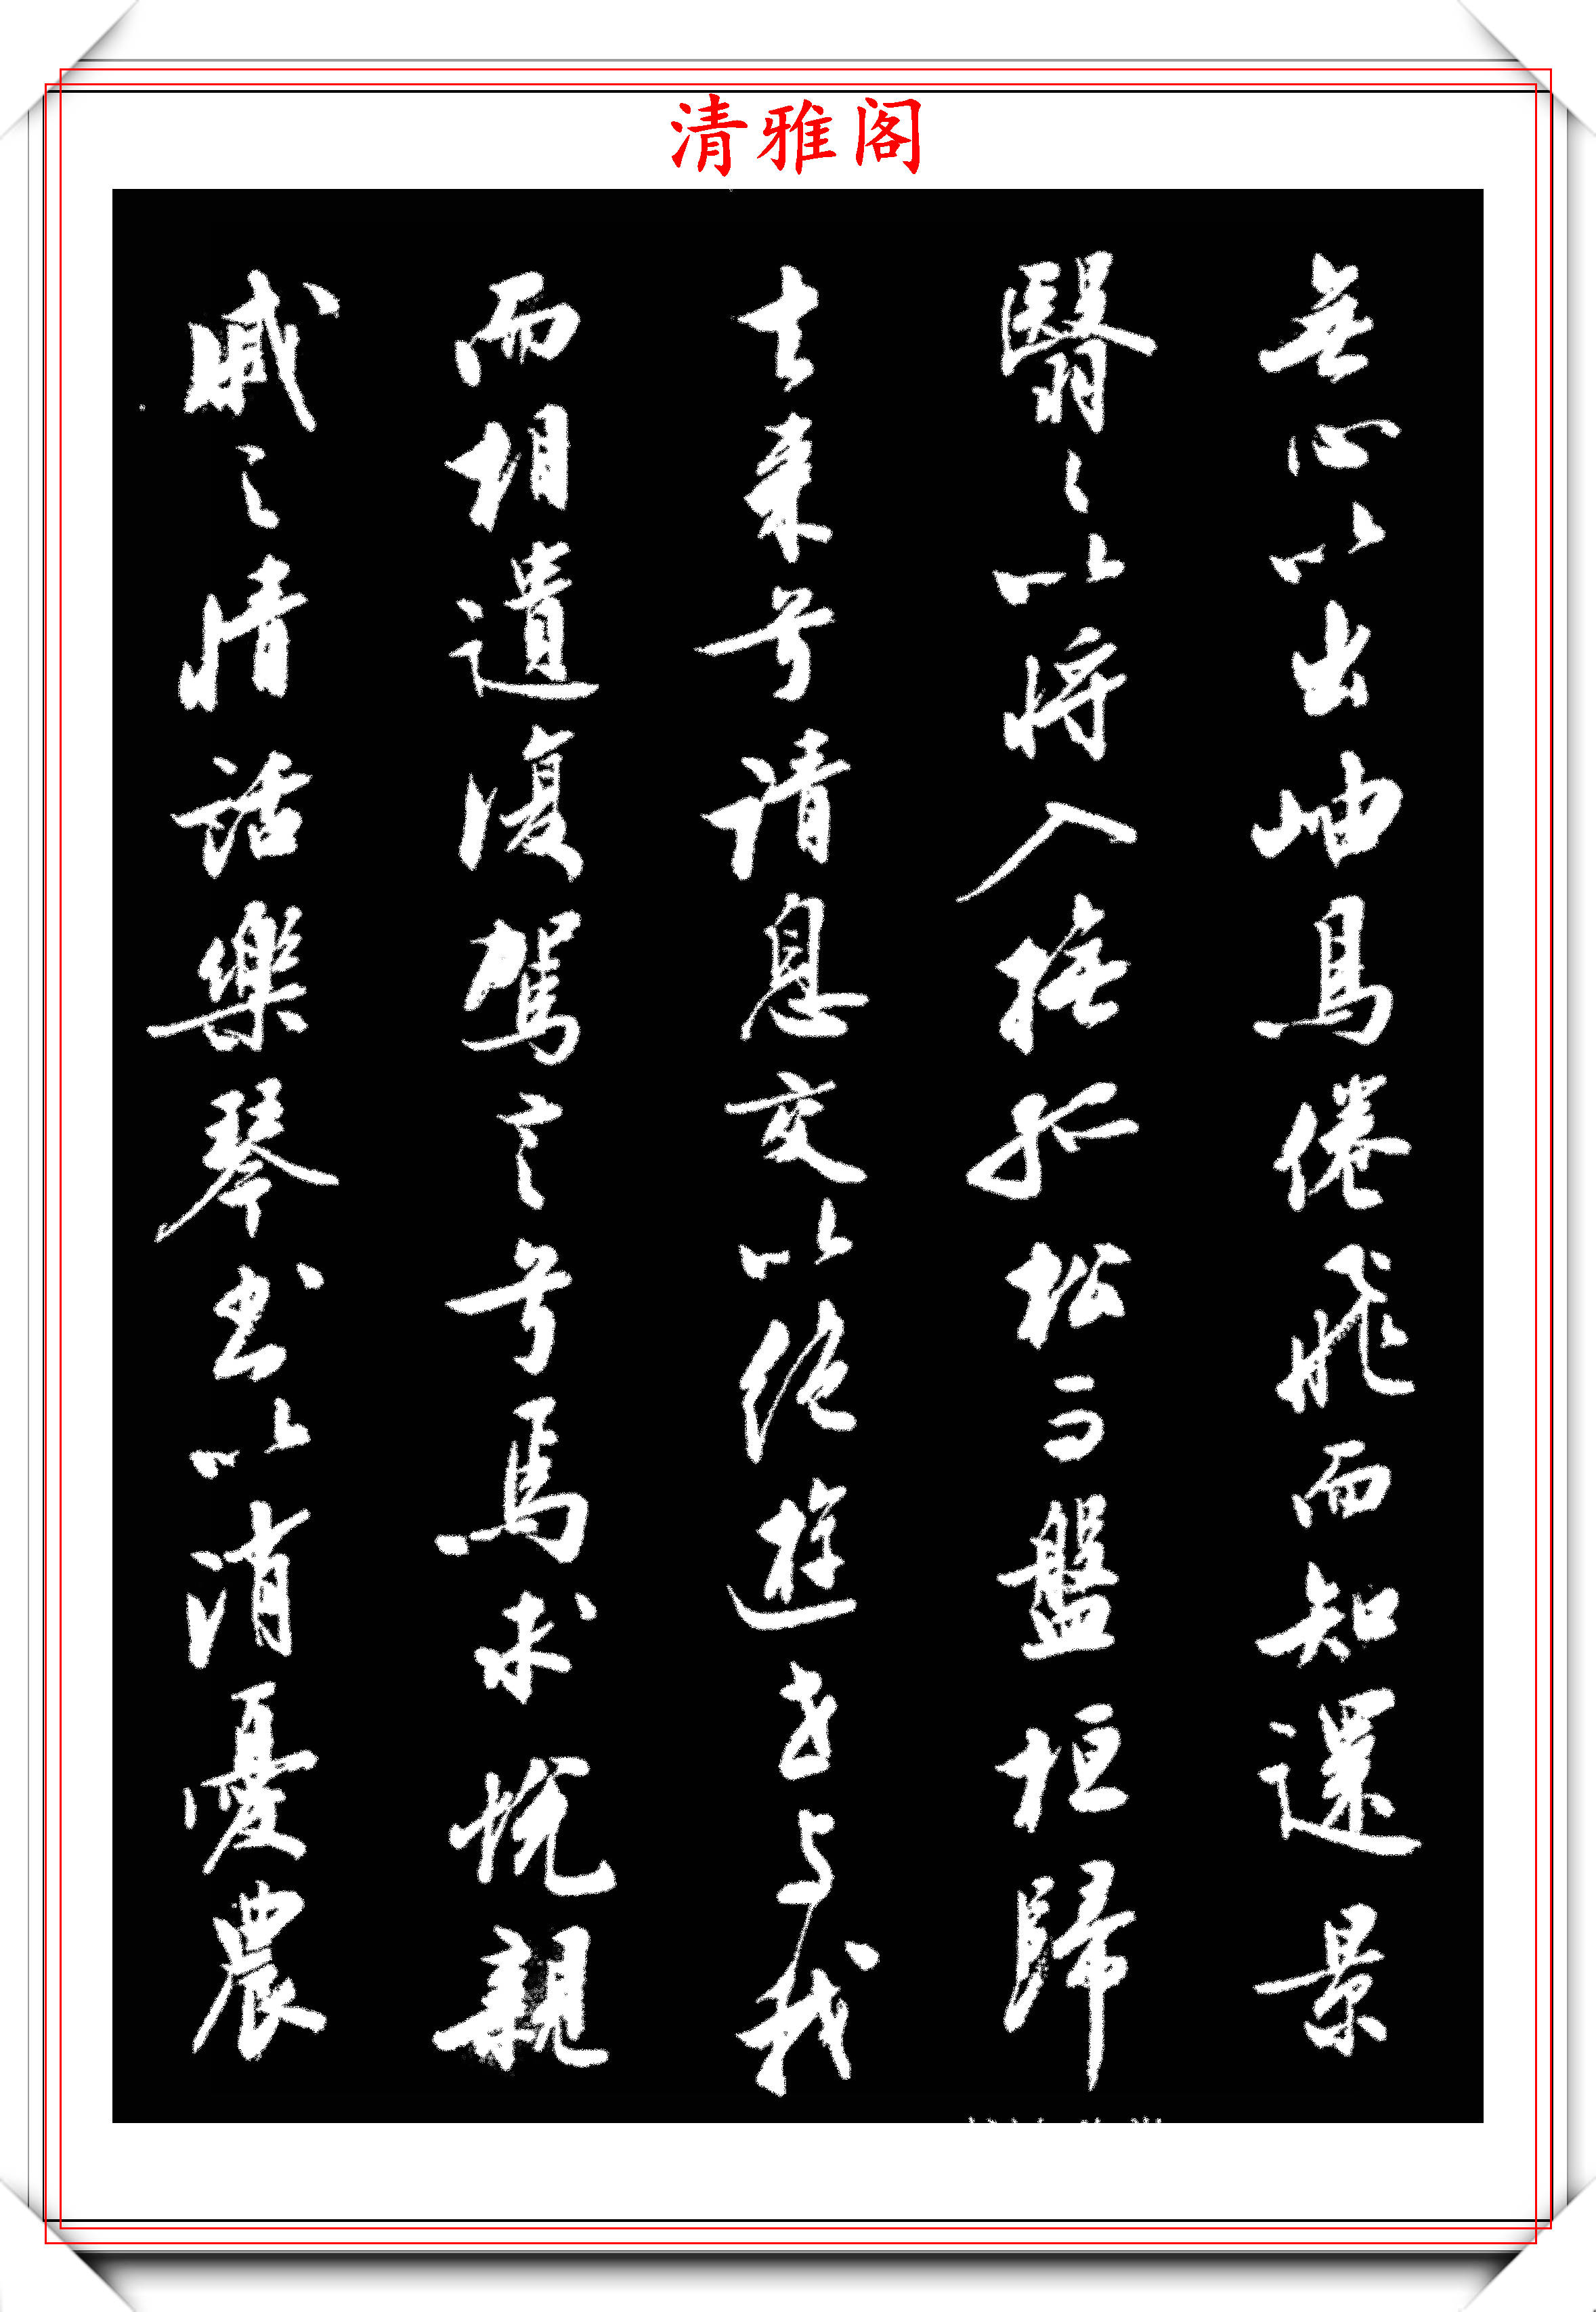 清雅阁
無心以出岫鳥倦飛而知還景
翳〻以将入撫孤松而盤桓歸
去来兮请息交以絶遊世与我
而相遺復駕言兮焉求悦親
戚之情話樂琴書以消憂農